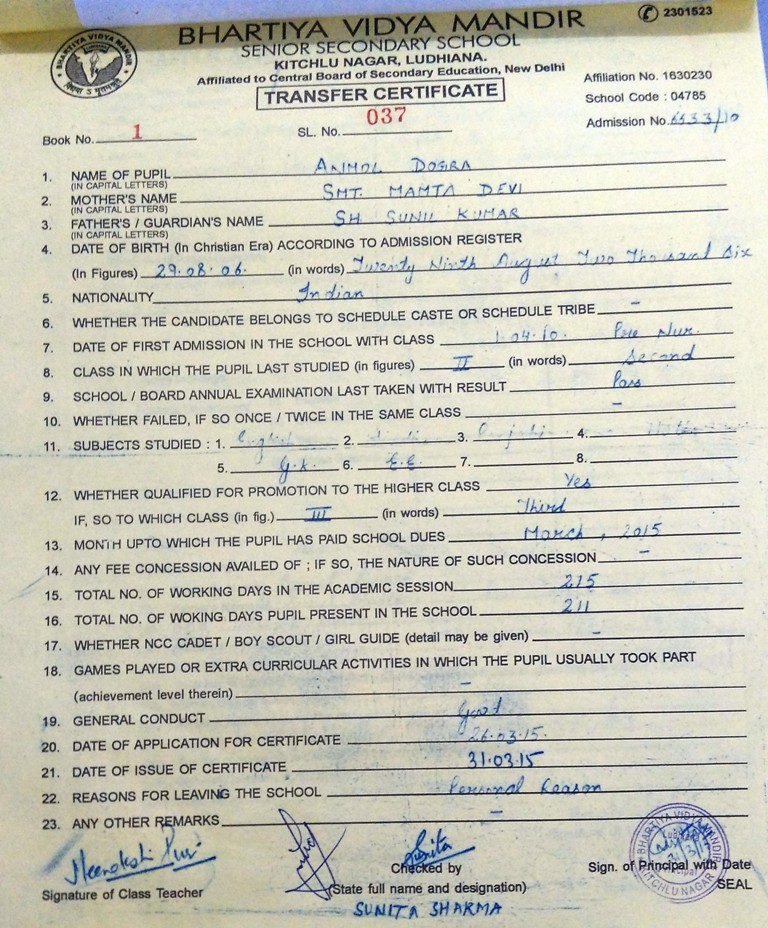 BHARTIYA VIDYA MANDIR
2301523
SENIOR SECONDARY SCHOOL
KITCHLU NAGAR, LUDHIANA.
Affiliated to Central Board of Secondary Education, New Delhi
TRANSFER CERTIFICATE
Affiliation No. 1630230
School Code : 04785
Admission No. 6533/10
Book No. 1 SL. No. 037
1. NAME OF PUPIL ANMOL DOGRA
(IN CAPITAL LETTERS)
2. MOTHER'S NAME SMT. MAMTA DEVI
(IN CAPITAL LETTERS)
3. FATHER'S / GUARDIAN'S NAME SH SUNIL KUMAR
(IN CAPITAL LETTERS)
4. DATE OF BIRTH (In Christian Era) ACCORDING TO ADMISSION REGISTER
(In Figures) 29.08.06. (in words) Twenty Ninth August Two Thousand Six
5. NATIONALITY Indian
6. WHETHER THE CANDIDATE BELONGS TO SCHEDULE CASTE OR SCHEDULE TRIBE –
7. DATE OF FIRST ADMISSION IN THE SCHOOL WITH CLASS 1.04.10. Pre Nur.
8. CLASS IN WHICH THE PUPIL LAST STUDIED (in figures) II (in words) Second
9. SCHOOL / BOARD ANNUAL EXAMINATION LAST TAKEN WITH RESULT Pass
10. WHETHER FAILED, IF SO ONCE / TWICE IN THE SAME CLASS –
11. SUBJECTS STUDIED : 1. English 2. Hindi 3. Punjabi 4.
5. G.K. 6. 7. 8.
12. WHETHER QUALIFIED FOR PROMOTION TO THE HIGHER CLASS Yes
IF, SO TO WHICH CLASS (in fig.) III (in words) Third
13. MONTH UPTO WHICH THE PUPIL HAS PAID SCHOOL DUES March, 2015
14. ANY FEE CONCESSION AVAILED OF ; IF SO, THE NATURE OF SUCH CONCESSION –
15. TOTAL NO. OF WORKING DAYS IN THE ACADEMIC SESSION 215
16. TOTAL NO. OF WOKING DAYS PUPIL PRESENT IN THE SCHOOL 211
17. WHETHER NCC CADET / BOY SCOUT / GIRL GUIDE (detail may be given) –
18. GAMES PLAYED OR EXTRA CURRICULAR ACTIVITIES IN WHICH THE PUPIL USUALLY TOOK PART
(achievement level therein) –
19. GENERAL CONDUCT Good
20. DATE OF APPLICATION FOR CERTIFICATE 26.03.15.
21. DATE OF ISSUE OF CERTIFICATE 31.03.15
22. REASONS FOR LEAVING THE SCHOOL Personal Reason
23. ANY OTHER REMARKS –
Meenakshi Puri
Sunita
Signature of Class Teacher
Checked by
(State full name and designation)
SUNITA SHARMA
Sign. of Principal with Date
SEAL
BHARTIYA VIDYA MANDIR
KITCHLU NAGAR